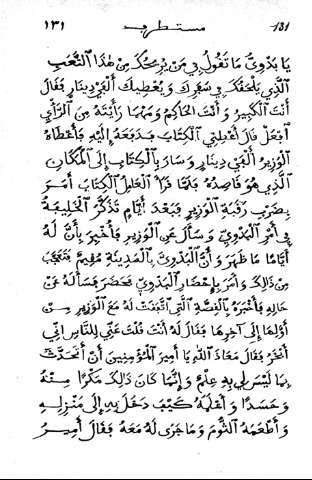 ١٣١ مستطرف 131
يَا بَدْوِىُّ مَا تَقُولُ فِي مَنْ يُرِيحُكَ مِنْ هٰذَا التَّعَبِ
الَّذِي يَلْحَقُكَ فِي سَفَرِكَ وَيُعْطِيكَ أَلْفَيْ دِينَارٍ فَقَالَ
أَنْتَ الْكَبِيرُ وَأَنْتَ الْحَاكِمُ وَمَهْمَا رَأَيْتَهُ مِنَ الرَّأْيِ
أَفْعَلُ قَالَ أَعْطِنِي الْكِتَابَ فَدَفَعَهُ إِلَيْهِ فَأَعْطَاهُ
الْوَزِيرُ أَلْفَيْ دِينَارٍ وَسَارَ بِالْكِتَابِ إِلَى الْمَكَانِ
الَّذِي هُوَ قَاصِدُهُ فَلَمَّا قَرَأَ الْعَامِلُ الْكِتَابَ أَمَرَ
بِضَرْبِ رَقَبَةِ الْوَزِيرِ فَبَعْدَ أَيَّامٍ تَذَكَّرَ الْخَلِيفَةُ
فِي أَمْرِ الْبَدْوِيِّ وَسَأَلَ عَنِ الْوَزِيرِ فَأُخْبِرَ بِأَنَّ لَهُ
أَيَّامًا مَا ظَهَرَ وَأَنَّ الْبَدْوِيَّ بِالْمَدِينَةِ مُقِيمٌ فَتَعَجَّبَ
مِنْ ذَالِكَ وَأَمَرَ بِإِحْضَارِ الْبَدْوِيِّ فَحَضَرَ فَسَأَلَهُ عَنْ
حَالِهِ فَأَخْبَرَهُ بِالْقِصَّةِ الَّتِي اتَّفَقَتْ لَهُ مَعَ الْوَزِيرِ مِنْ
أَوَّلِهَا إِلَى آخِرِهَا فَقَالَ لَهُ أَنْتَ قُلْتَ عَنِّي لِلنَّاسِ إِنِّي
أَبْخَرُ فَقَالَ مَعَاذَ اللّٰهِ يَا أَمِيرَ الْمُؤْمِنِينَ أَنْ أَتَحَدَّثَ
بِمَا لَيْسَ لِي بِهِ عِلْمٌ وَإِنَّمَا كَانَ ذَالِكَ مَكْرًا مِنْهُ
وَحَسَدًا وَأَعْلَمَهُ كَيْفَ دَخَلَ بِهِ إِلَى مَنْزِلِهِ
وَأَطْعَمَهُ الثُّومَ وَمَا جَرَى لَهُ مَعَهُ فَقَالَ أَمِيرُ